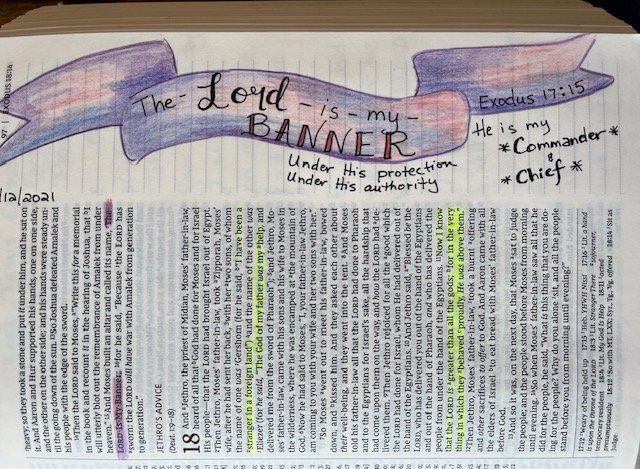 97 | EXODUS 18:14
The - Lord - is - my -
BANNER
Under His protection
Under His authority
Exodus 17:15
He is my
*Commander*
&
*Chief*
/12/2021
heavy; so they took a stone and put it under him, and he sat on
it. And Aaron and Hur supported his hands, one on one side,
and the other on the other side; and his hands were steady un-
til the going down of the sun. 13So Joshua defeated Amalek and
his people with the edge of the sword.
14Then the LORD said to Moses, "Write this for a memorial
in the book and recount it in the hearing of Joshua, that I
will utterly blot out the remembrance of Amalek from under
heaven." 15And Moses built an altar and called its name, The-
LORD-Is-My-Banner; 16for he said, "Because the LORD has
sworn: the LORD will have war with Amalek from generation
to generation."
JETHRO'S ADVICE
(Deut. 1:9–18)
18 And Jethro, the priest of Midian, Moses' father-in-law,
heard of all that God had done for Moses and for Israel
His people—that the LORD had brought Israel out of Egypt.
2Then Jethro, Moses' father-in-law, took Zipporah, Moses'
wife, after he had sent her back, 3with her two sons, of whom
the name of one was Gershom (for he said, "I have been a
stranger in a foreign land") 4and the name of the other was
Eliezer (for he said, "The God of my father was my help, and
delivered me from the sword of Pharaoh"); 5and Jethro, Mo-
ses' father-in-law, came with his sons and his wife to Moses in
the wilderness, where he was encamped at the mountain of
God. 6Now he had said to Moses, "I, your father-in-law Jethro,
am coming to you with your wife and her two sons with her."
7So Moses went out to meet his father-in-law, bowed
down, and kissed him. And they asked each other about
their well-being, and they went into the tent. 8And Moses
told his father-in-law all that the LORD had done to Pharaoh
and to the Egyptians for Israel's sake, all the hardship that
had come upon them on the way, and how the LORD had de-
livered them. 9Then Jethro rejoiced for all the good which
the LORD had done for Israel, whom He had delivered out of
the hand of the Egyptians. 10And Jethro said, "Blessed be the
LORD, who has delivered you out of the hand of the Egyptians
and out of the hand of Pharaoh, and who has delivered the
people from under the hand of the Egyptians. 11Now I know
that the LORD is greater than all the gods; for in the very
thing in which they behaved proudly, He was above them."
12Then Jethro, Moses' father-in-law, took a burnt offering
and other sacrifices to offer to God. And Aaron came with all
the elders of Israel to eat bread with Moses' father-in-law
before God.
13And so it was, on the next day, that Moses sat to judge
the people; and the people stood before Moses from morning
until evening. 14So when Moses' father-in-law saw all that he
did for the people, he said, "What is this thing that you are do-
ing for the people? Why do you alone sit, and all the people
stand before you from morning until evening?"